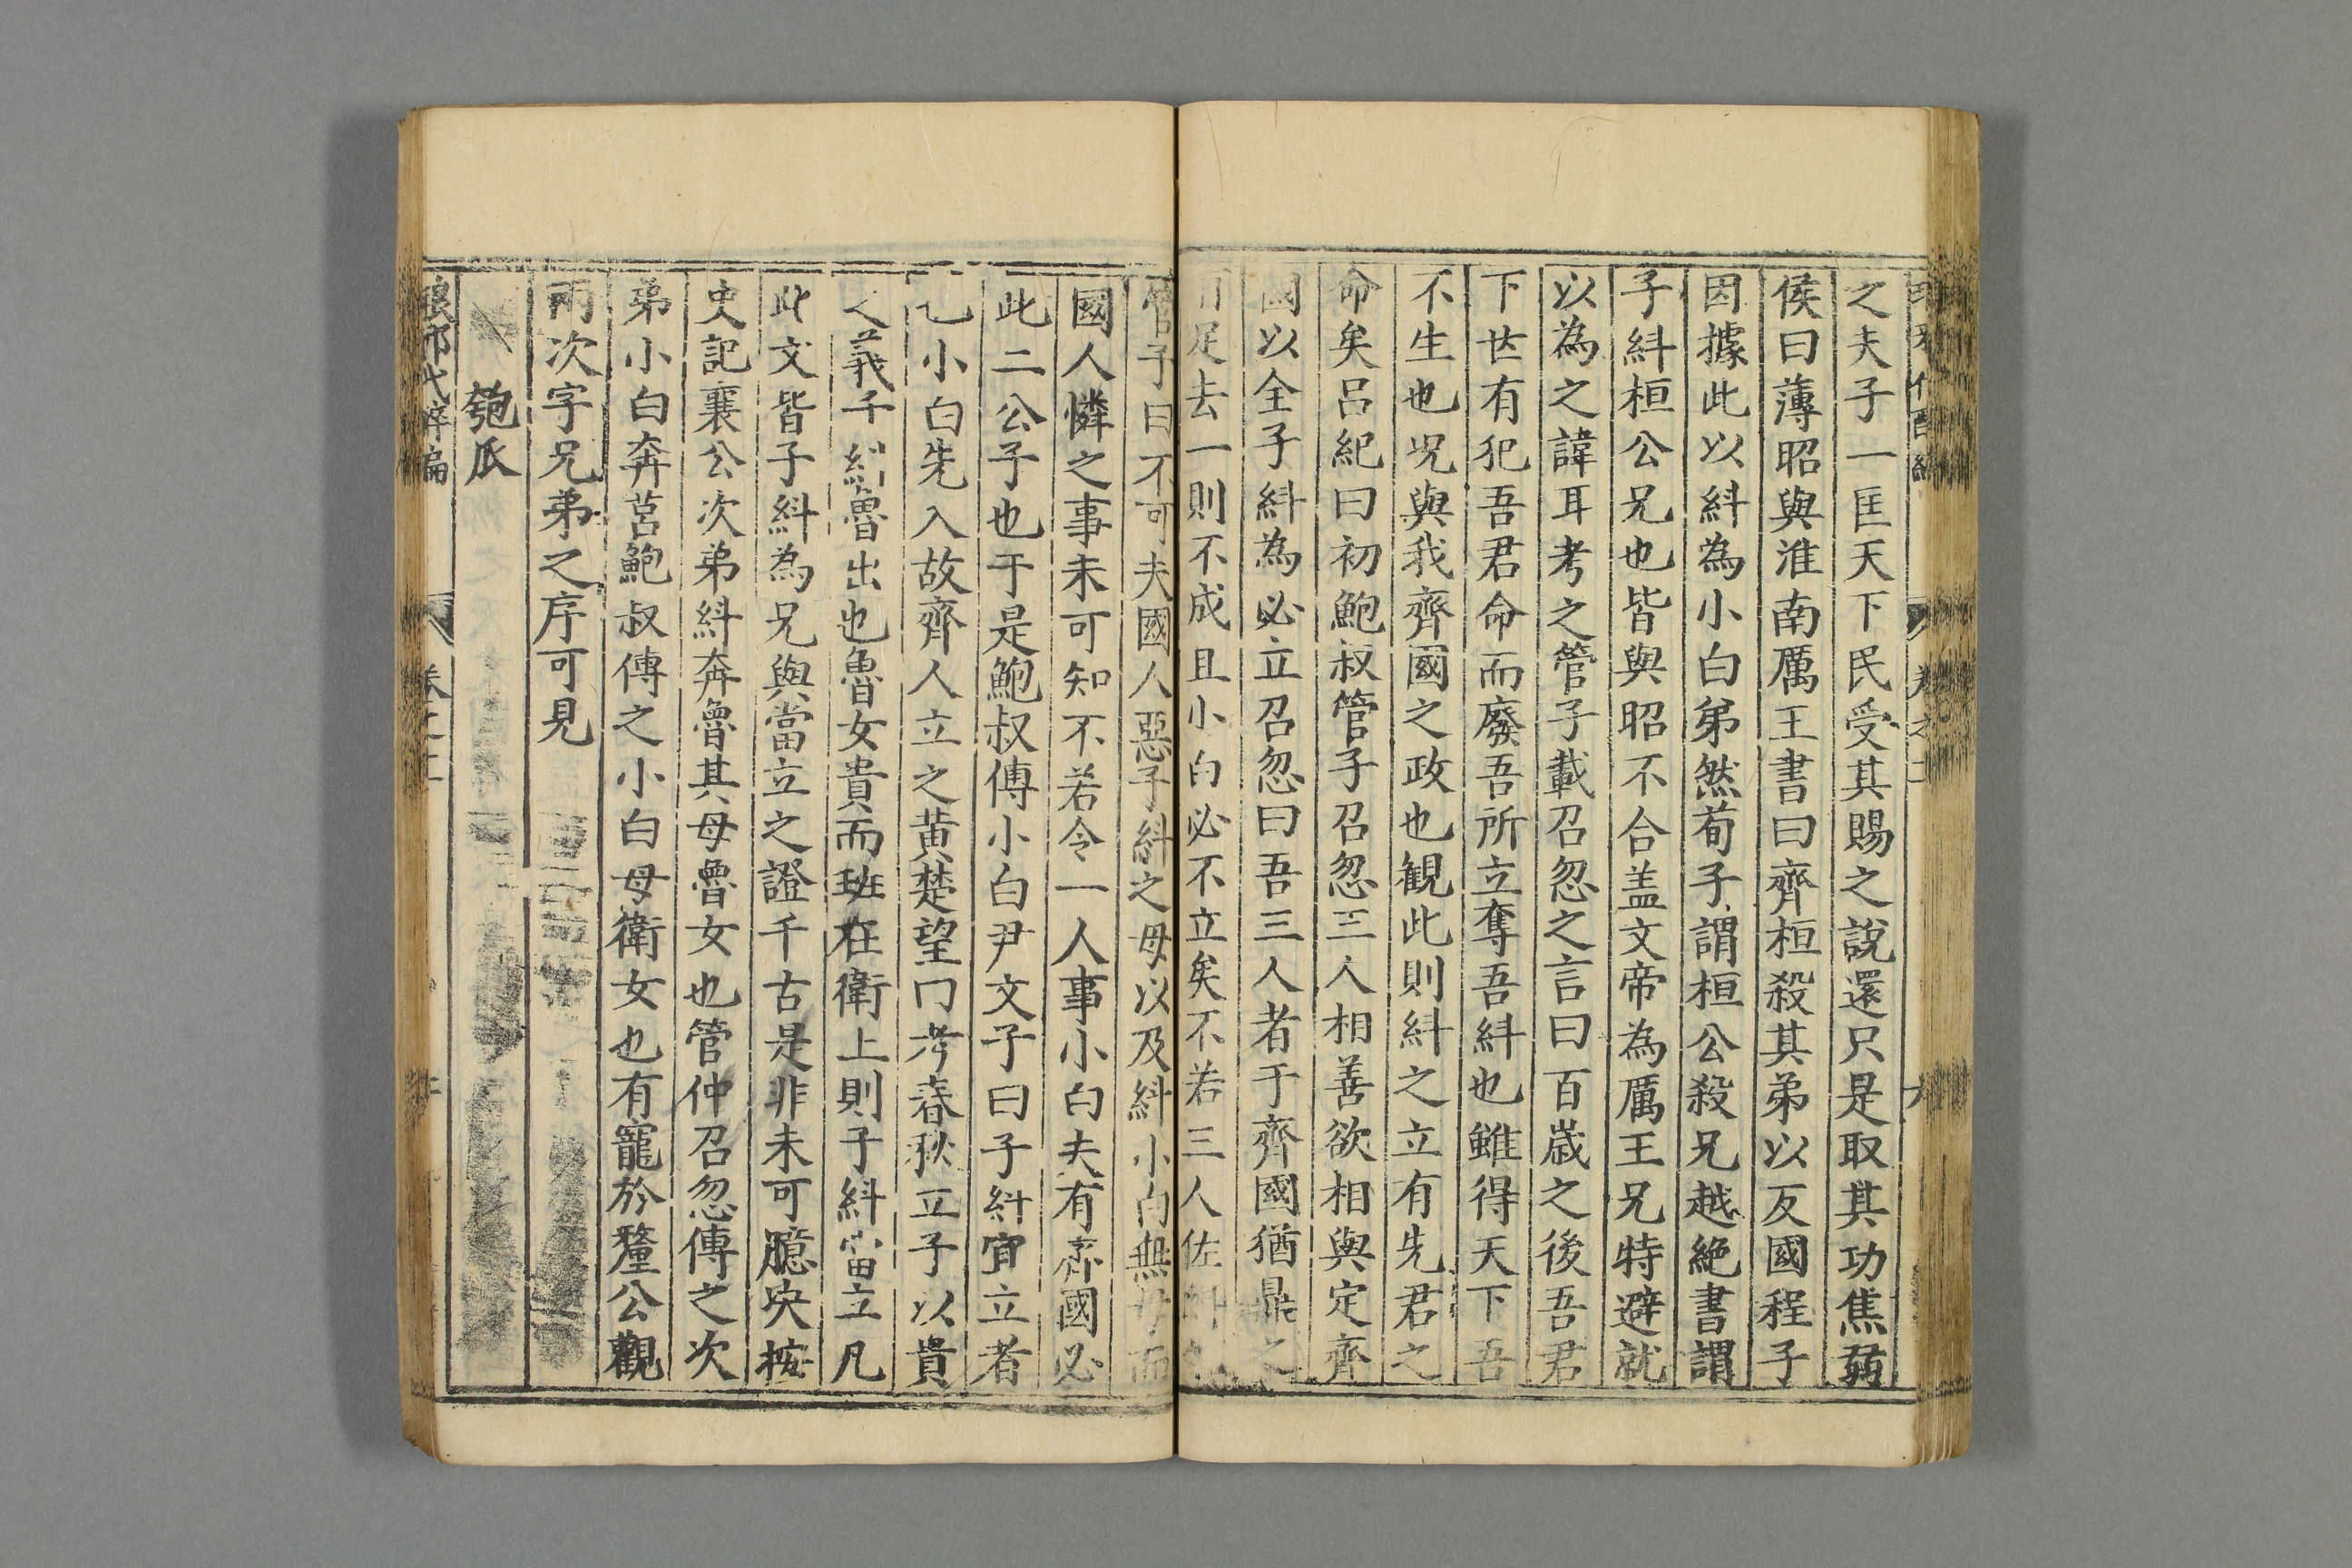 之夫子一匡天下民受其賜之說還只是取其功焦弱
侯曰薄昭與淮南厲王書曰齊桓殺其弟以反國程子
因據此以糾為小白弟然荀子謂桓公殺兄越絕書謂
子糾桓公兄也皆與昭不合盖文帝為厲王兄特避就
以為之諱耳考之管子載召忽之言曰百歳之後吾君
下世有犯吾君命而廢吾所立奪吾糾也雖得天下吾
不生也况與我齊國之政也觀此則糾之立有先君之
命矣呂紀曰初鮑叔管子召忽三人相善欲相與定齊
國以全子糾為必立召忽曰吾三人者于齊國猶鼎之
足去一則不成且小白必不立矣不若三人佐糾
管子曰不可夫國人惡子糾之母以及糾小白無母而
國人憐之事未可知不若令一人事小白夫有齊國必
此二公子也于是鮑叔傅小白尹文子曰子糾宜立者
也小白先入故齊人立之黃楚望曰考春秋立子以貴
之義子糾魯出也魯女貴而班在衛上則子糾當立凡
此文皆子糾為兄與當立之證千古是非未可臆决按
史記襄公次弟糾奔魯其母魯女也管仲召忽傅之次
弟小白奔莒鮑叔傅之小白母衛女也有寵於釐公觀
兩次字兄弟之序可見
匏瓜
琅邪代醉編 卷之二